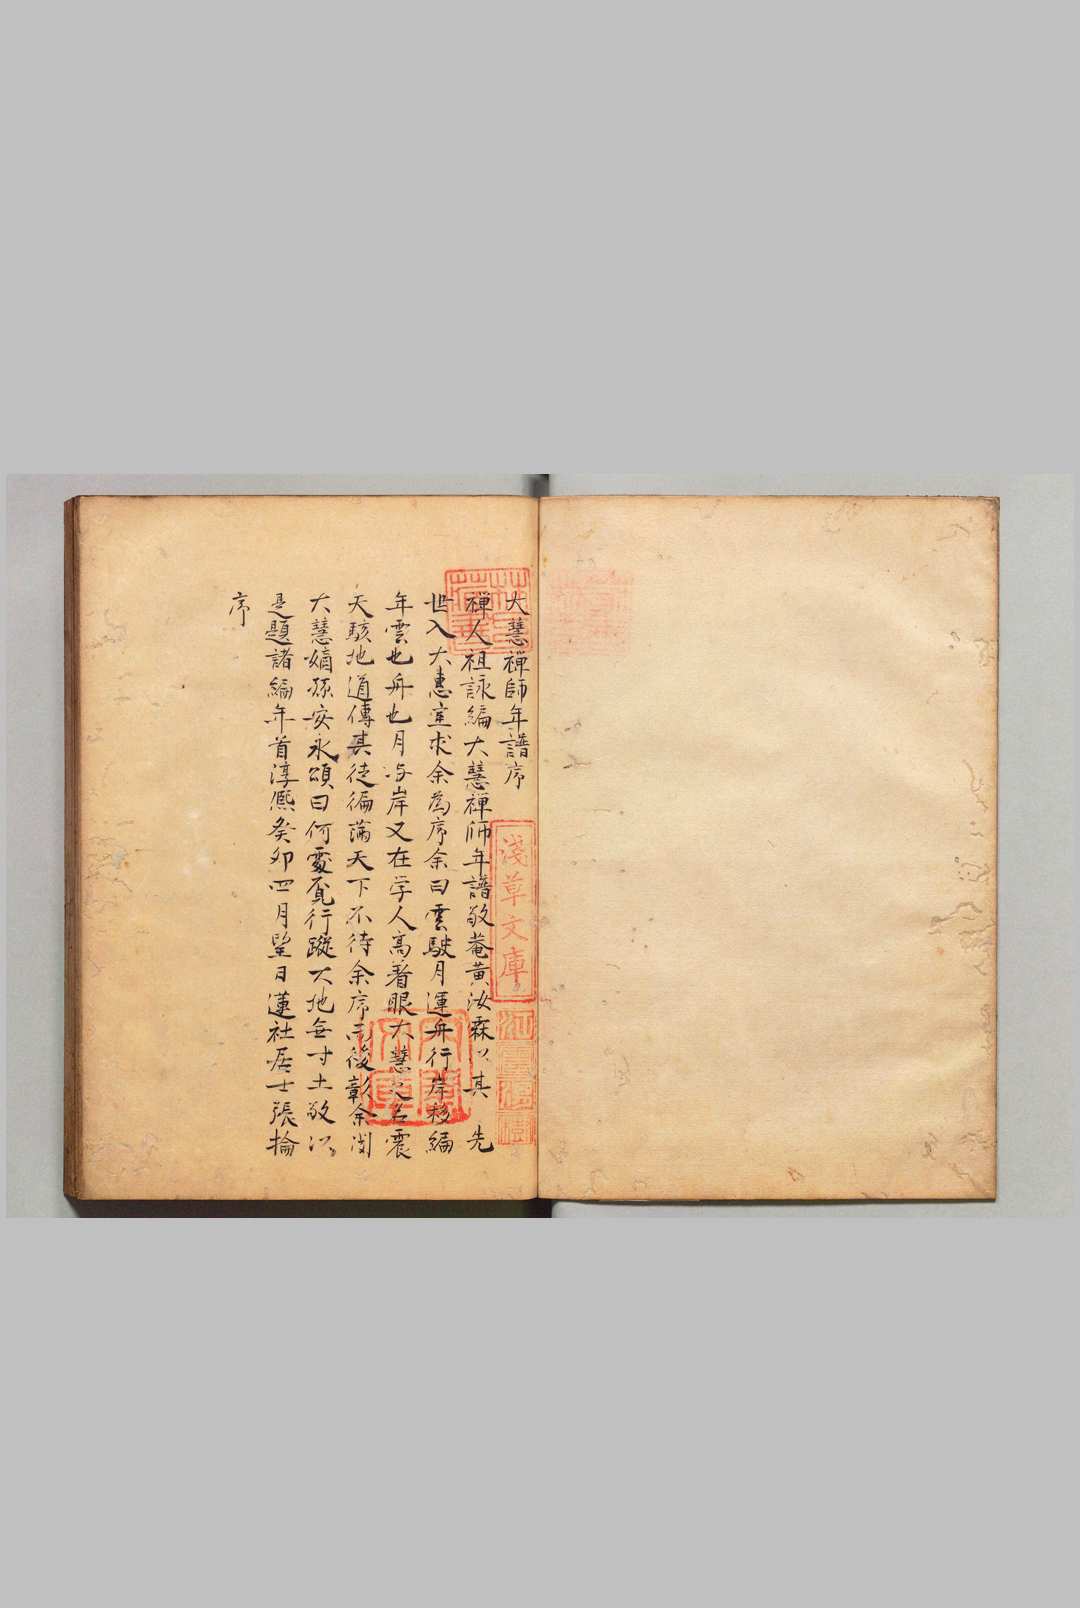 大慧禅師年譜序
禅人祖詠編大慧禅師年譜敬菴黃汝霖以其先
世入大恵室求余為序余曰雲駛月運舟行岸移編
年雲也舟也月与岸又在学人高着眼大慧之名震
天駭地道傳其徒徧満天下不待余序而後彰余閲
大慧嫡孫安永頌曰何處覔行蹤大地無寸土敬以
是題諸編年首淳熈癸卯四月望日蓮社居士張掄
序
淺草文庫